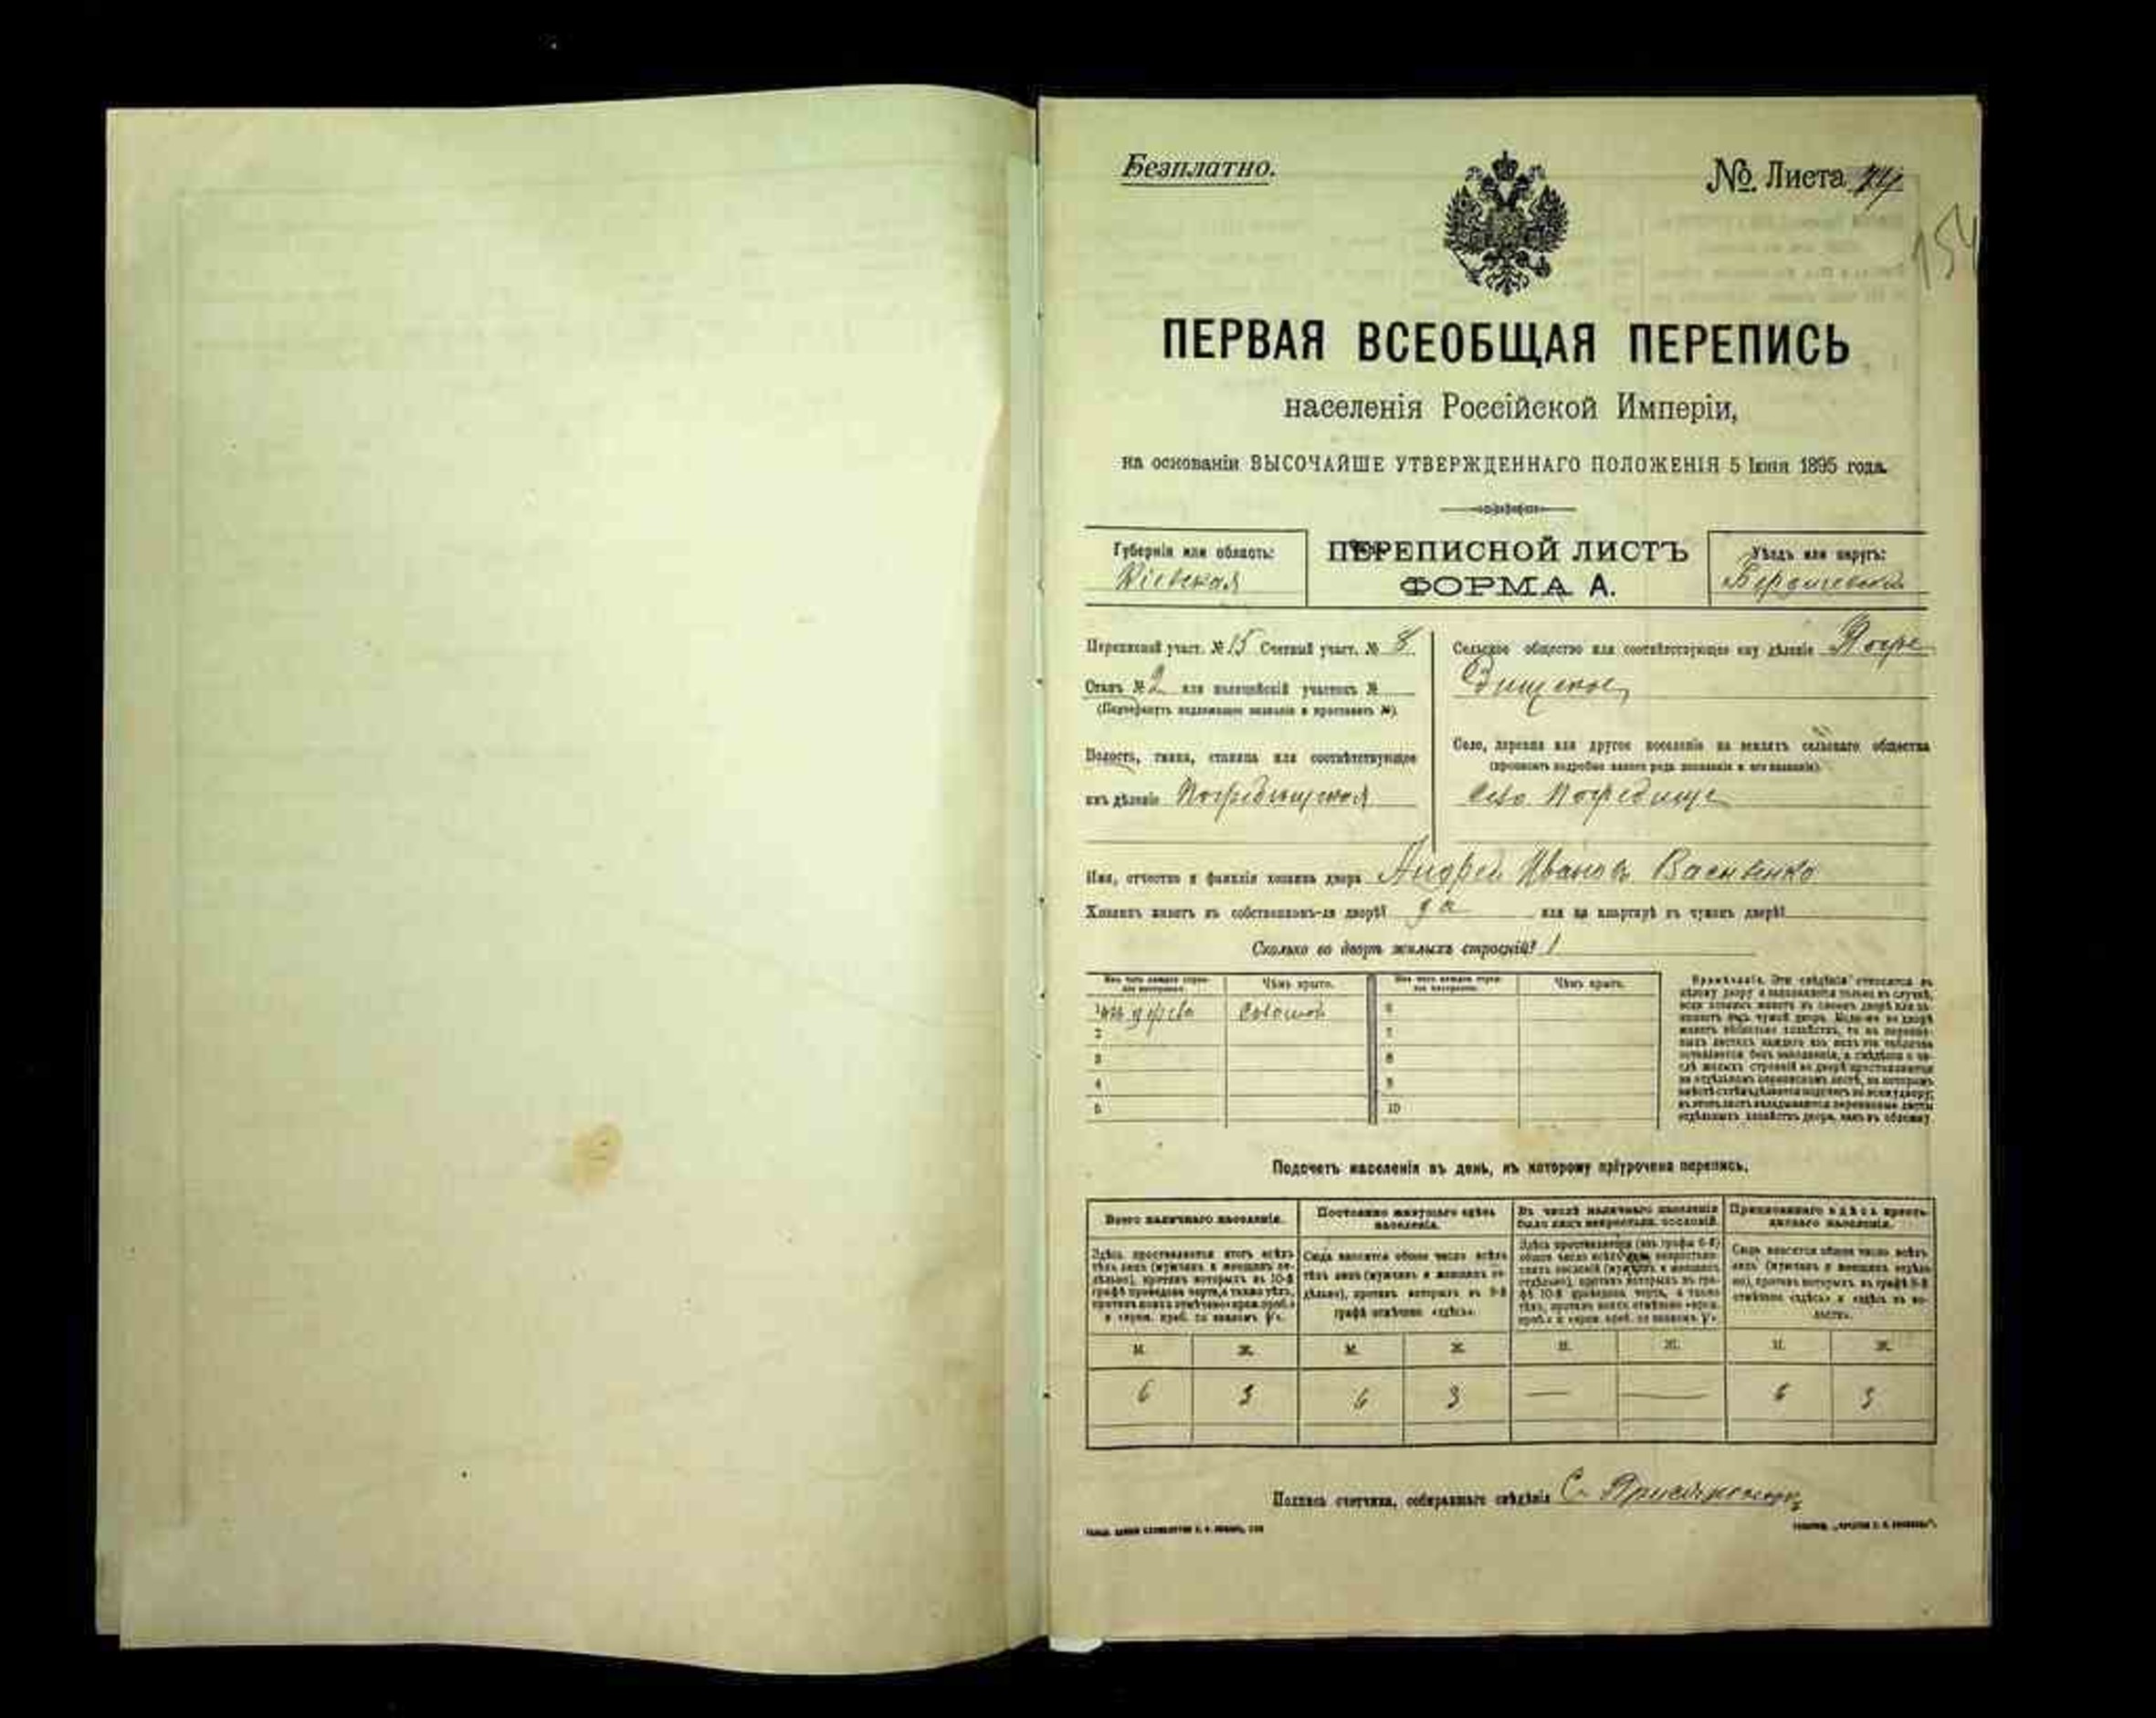 Безплатно.
№ Листа 74
154
ПЕРВАЯ ВСЕОБЩАЯ ПЕРЕПИСЬ
населенія Россійской Имперіи,
на основаніи ВЫСОЧАЙШЕ УТВЕРЖДЕННАГО ПОЛОЖЕНІЯ 5 Іюня 1895 года.
Губернія или область:
Кіевская
ПЕРЕПИСНОЙ ЛИСТЪ
ФОРМА А.
Уѣздъ или округъ:
Бердичевскій
Переписной участ. № 15 Счетный участ. № 8
Станъ № 2 или полицейскій участокъ №
(Подчеркнуть надлежащее названіе и проставить №)
Волость, гмина, станица или соотвѣтствующее
имъ дѣленіе Погребищская
Сельское общество или соотвѣтствующее ему дѣленіе Погре
бищское
Село, деревня или другое поселеніе на земляхъ сельскаго общества
(прописать подробно какого рода поселеніе и его названіе)
село Погребище
Имя, отчество и фамилія хозяина двора Андрей Ивановъ
Хозяинъ живетъ въ собственномъ-ли дворѣ? да или на квартирѣ въ чужомъ дворѣ?
Сколько во дворѣ жилыхъ строеній? 1
Изъ чего каждое строеніе построено. Чѣмъ крыто. Изъ чего каждое строеніе построено. Чѣмъ крыто.
1 изъ дерева соломой 6
2 7
3 8
4 9
5 10
Примѣчаніе. Эти свѣдѣнія относятся къ
цѣлому двору и заполняются только въ случаѣ,
если хозяинъ живетъ въ своемъ дворѣ или за-
нимаетъ весь чужой дворъ. Если-же во дворѣ
живетъ нѣсколько хозяйствъ, то въ перепис-
ныхъ листахъ каждаго изъ нихъ эта табличка
оставляется безъ заполненія, а свѣдѣнія о чи-
слѣ жилыхъ строеній во дворѣ проставляются
на отдѣльномъ переписномъ листѣ, на которомъ
вмѣстѣ съ тѣмъ дѣлается подсчетъ по всему двору;
въ этотъ листъ вкладываются переписные листы
отдѣльныхъ хозяйствъ двора, какъ въ обложку
Подсчетъ населенія въ день, къ которому пріурочена перепись.
Всего наличнаго населенія.
Здѣсь проставляется итогъ всѣхъ
тѣхъ лицъ (мужчинъ и женщинъ от-
дѣльно), противъ которыхъ въ 10-й
графѣ проведена черта, а также тѣхъ,
противъ коихъ отмѣчено «врем. преб.»
Постоянно живущаго здѣсь
населенія.
Сюда вносится общее число всѣхъ
тѣхъ лицъ (мужчинъ и женщинъ от-
дѣльно), противъ которыхъ въ 9-й
графѣ отмѣчено «здѣсь».
Въ числѣ наличнаго населенія
было лицъ некрестьян. сословій.
Здѣсь проставляется (изъ графы 6-й)
общее число всѣхъ лицъ некрестьян-
скихъ сословій (мужчинъ и женщинъ
отдѣльно), противъ которыхъ въ гра-
фѣ 10-й проведена черта, а также
тѣхъ, противъ коихъ отмѣчено «врем.
Приписаннаго здѣсь кресть-
янскаго населенія.
Сюда вносится общее число всѣхъ
лицъ (мужчинъ и женщинъ отдѣль-
но), противъ которыхъ въ графѣ 8-й
отмѣчено «здѣсь» и «здѣсь въ во-
лости».
М. Ж. М. Ж. М. Ж. М. Ж.
6 3 6 3 — — 6 3
Подпись счетчика, собиравшаго свѣдѣнія С.